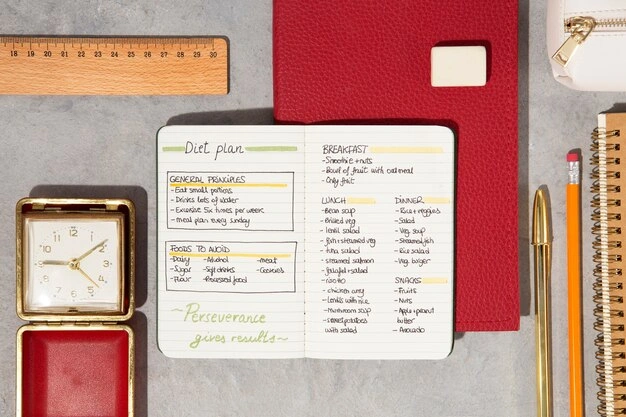 18 19 20 21 22 23 24 25 26 27 28 29 30
Diet plan
GENERAL PRINCIPLES
- Eat small portions
- Drinks lots of water
- Excersise six times per week
- meal plan every sunday
FOODS TO AVOID
- Dairy - Alcohol - meat
- Sugar - Soft drinks
- Flour - Processed food
~ Perseverance
gives results ~
BREAKFAST
- Smoothie + nuts
- Bowl of fruit with oatmeal
- Only fruit
LUNCH
- Bean soup
- Grilled veg
- lentil salad
- fish + steamed veg
- tuna salad
- steamed salmon
- falafel + salad
- risotto
- chicken curry
- Lentils with rice
- mushroom soup
- sweet potatoes
with salad
DINNER
- Rice + veggies
- Salad
- Veg soup
- Steamed fish
- Rice salad
- Veg burger
SNACKS
- Fruits
- Nuts
- Apple + peanut
butter
- Avocado
12 1 2 3 4 5 6 7 8 9 10 11